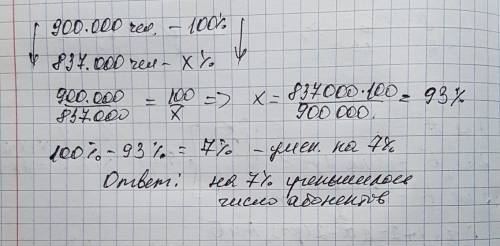 900.000 чел. – 100%
837.000 чел – x%
900.000/837.000 = 100/x => x = 837000·100/900000. = 93%
100% – 93% = 7% – умен. на 7%
Ответ: на 7% уменьшилось
число абонентов